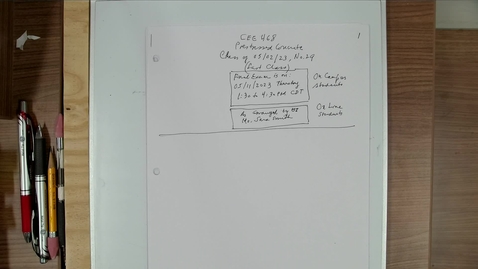 CEE 468
1
Prestressed Concrete
Class of 05/02/23, No. 29
(Last Class)
Final Exam is on
05/11/2023 Thursday
1:30 to 4:30 PM CDT
On Campus
Students
As arranged by
Ms. Smith
On Line
Students